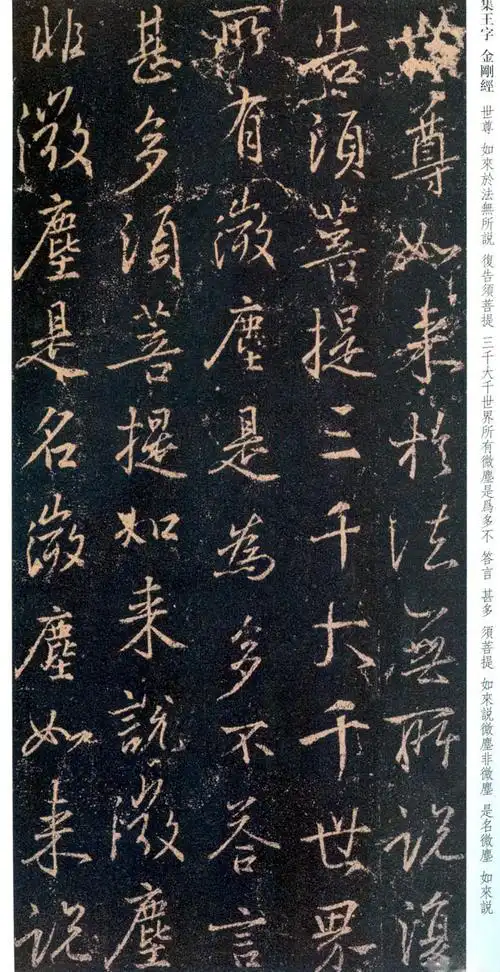 集王字 金剛經 世尊 如來於法無所説 復告須菩提 三千大千世界所有微塵是爲多不 答言 甚多 須菩提 如來説微塵非微塵 是名微塵 如來説
世尊如来於法無所説復
告須菩提三千大千世界
所有微塵是為多不答言
甚多須菩提如来説微塵
非微塵是名微塵如来説